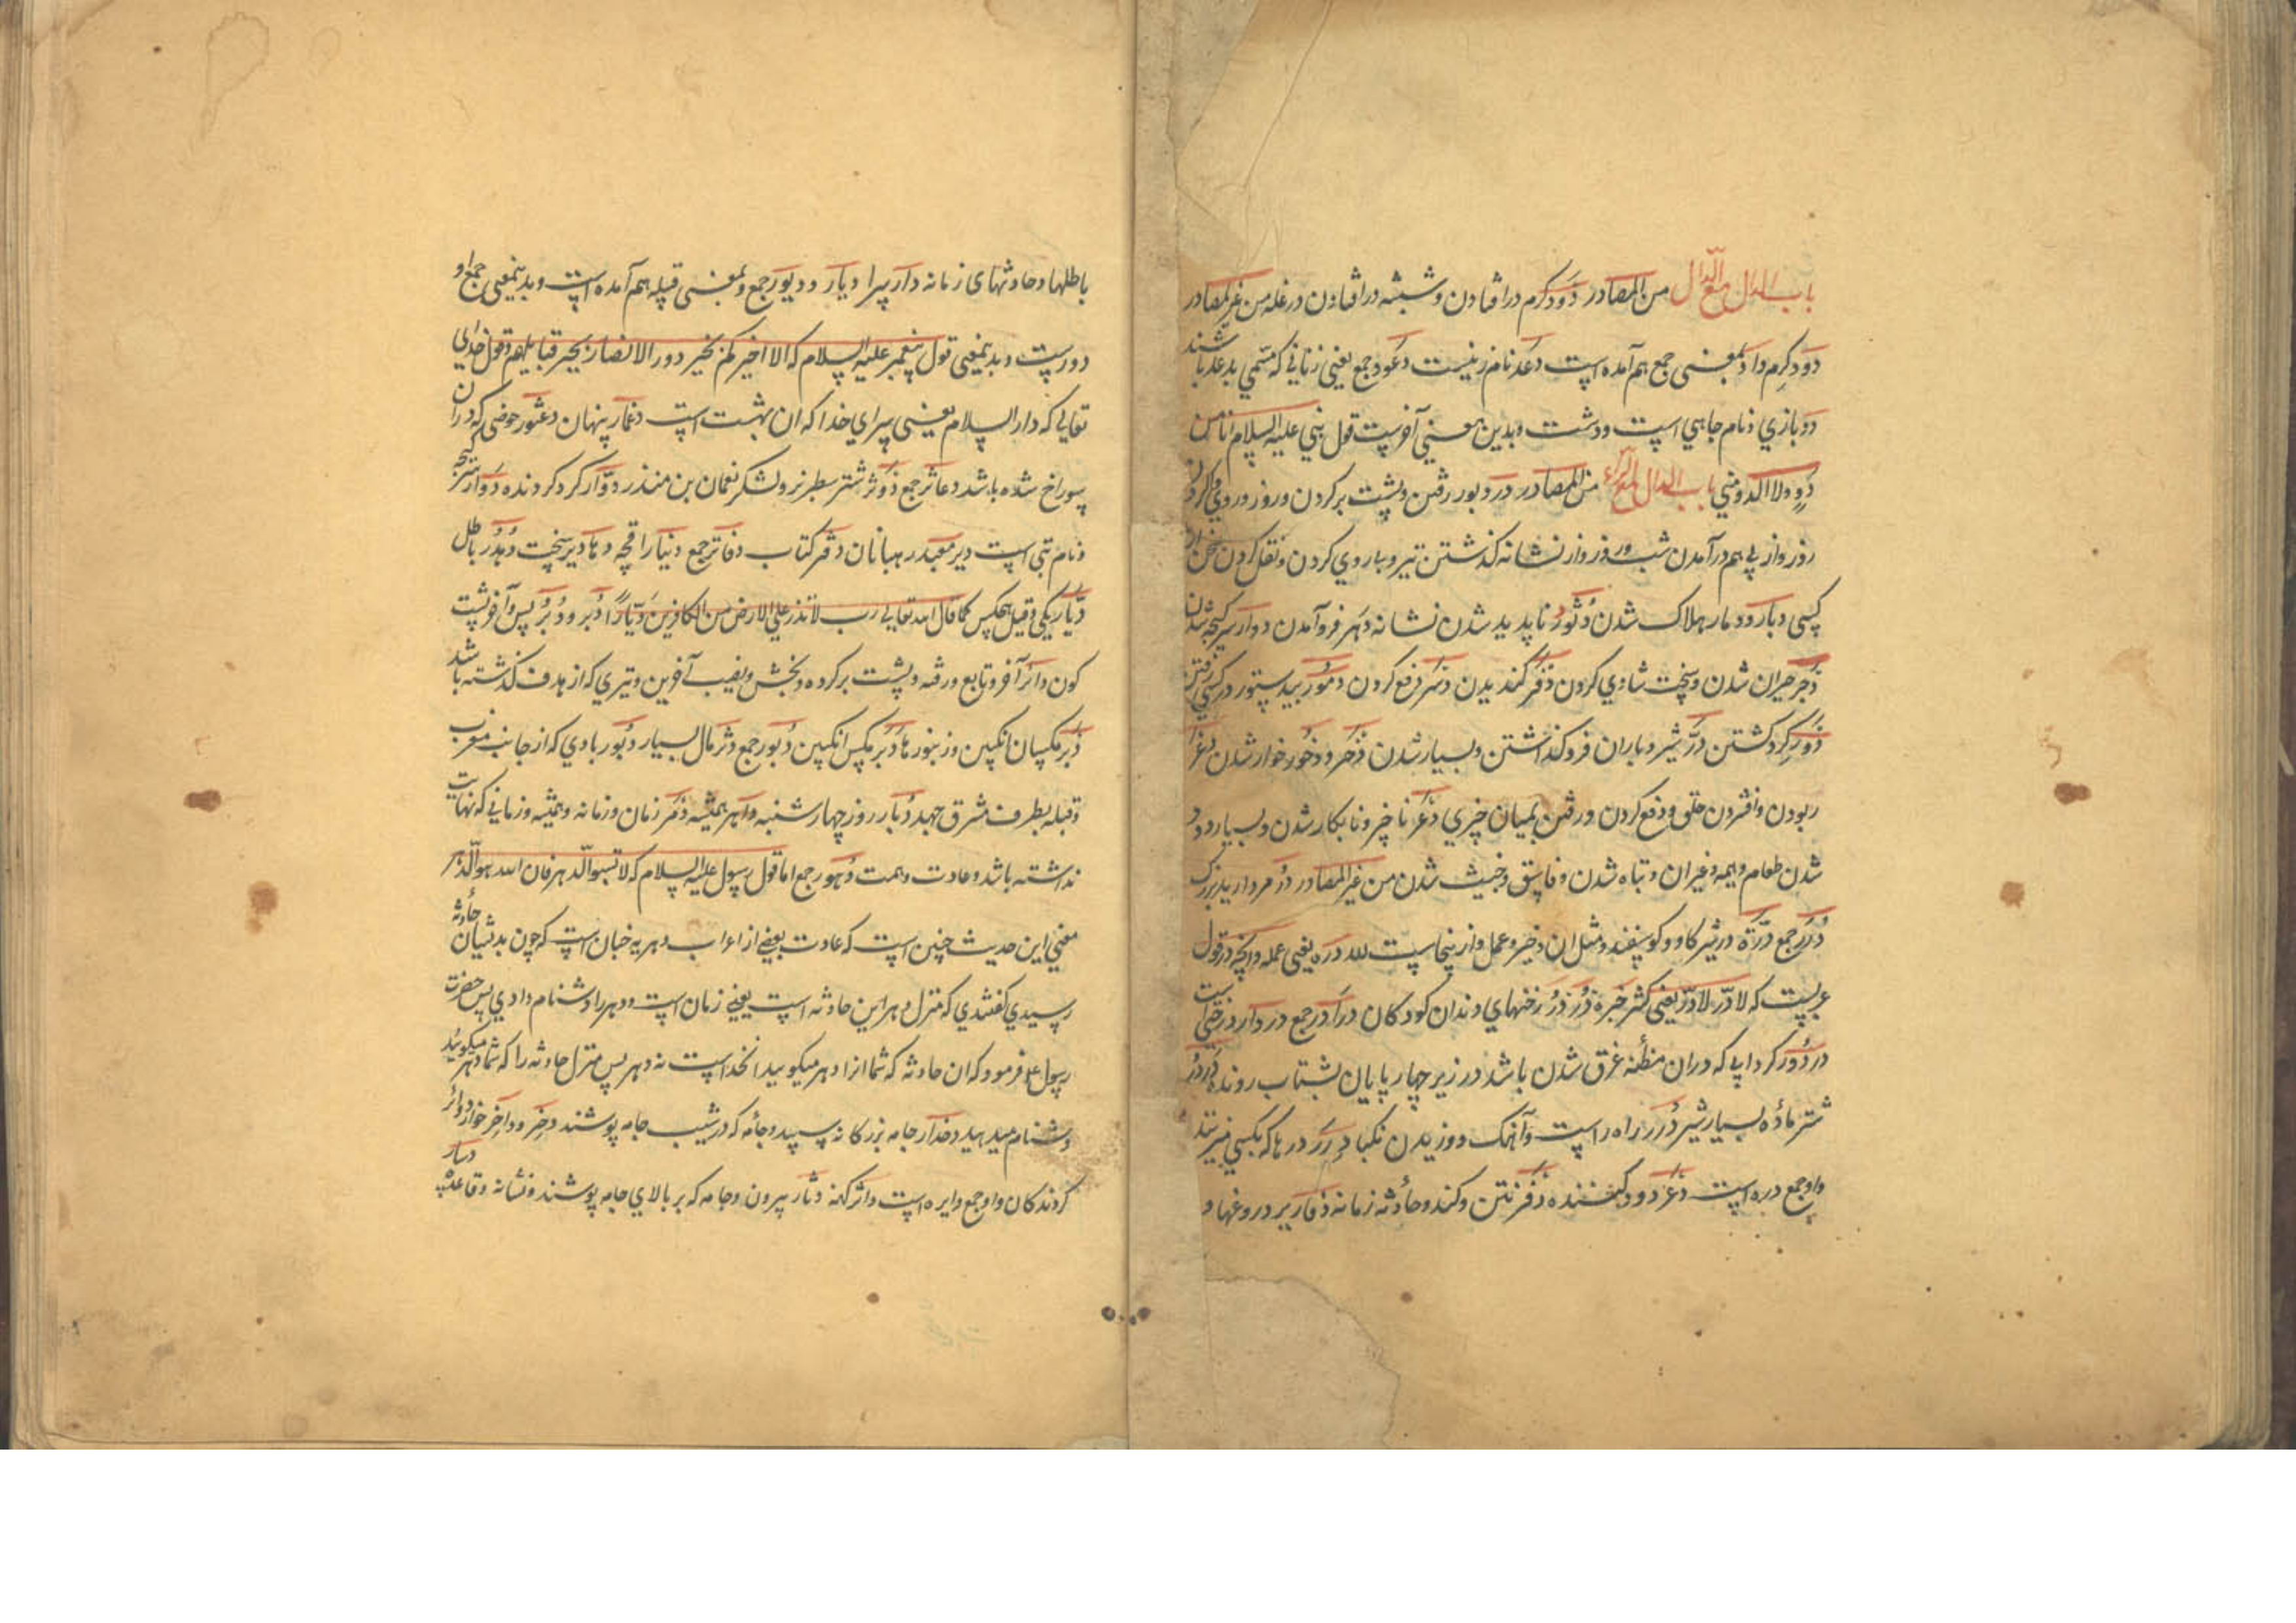 باب الدال مع الدال من المصادر دود کرم درافتادن وشبشه درافتادن درغله من غیر المصادر
دود کرم داد بمعنی جمع هم آمده است دعد نام زنیست دعود جمع یعنی زنانی که مسمی بدعد باشند
دد بازي ونام جاهي است ودشت وبدین معنی آخرست قول نبی علیه السلام انا من
دد ولا الدد مني باب الدال مع الراء من المصادر در دبور رفتن وپشت بر کردن وروز وروي کردن
روز واز پي هم در آمدن شب وروز واز نشانه گذشتن تیر وبار وي کردن ونقل کردن سخن از
کسی دبار ودمار هلاک شدن دثور ناپدید شدن نشانه دهر فرو آمدن دوار سر گیجه شدن
دجر حیران شدن وسخت شادي کردن دفر گندیدن دسر دفع کردن دمور بیدستور در کسی رفتن
دور گرد گشتن در شیر وباران فرو گذاشتن وبسیار شدن دخر ودخور خوار شدن دغر
ربودن وافشردن حلق ودفع کردن ورفتن بمیان چیزي دعر ناچیز ونابکار شدن وبسیار دود
شدن طعام وهیمه وغیر ان وتباه شدن وفاسق وخبیث شدن من غیر المصادر در مروارید بزرگ
درر جمع درة در شیر گاو وگوسفند ومثل ان وخیر وعمل واز ینجاست لله دره یعنی عمله وآنچه در قول
عربست که لا در لا در یعنی کثر خیره درر در رخنهاي دندان کودکان درادر جمع دردار درختی است
دردور گردابي که دران مظنه غرق شدن باشد در زیر چهارپایان بشتاب رونده درور
شتر ماده بسیار شیر درر راه راست وآهنگ ووزیدن نکبا درر درها که بکسی میزنند
واو جمع دره است دعر دود کننده دفر نتن وکند وحادثه زمانه دقاریر دروغها و
باطلها وحادثهای زمانه دار سرا دیار ودیور جمع وبمعنی قبیله هم آمده است وبدینمعنی جمع او
دورست وبدینمعنی قول پیغمبر علیه السلام که الا اخبرکم بخیر دور الانصار بخیر قبایلهم وقول خداي
تعالی که دار السلام یعنی سراي خدا که ان بهشت است دغمار پنهان دعثور حوضی که دران
سوراخ شده باشد دعاثر جمع دوثر شتر سطبر نر ولشکر نعمان بن منذر دوار گرد گردنده دوار سر گیجه
ونام بتی است دیر معبد رهبانان دفتر کتاب دفاتر جمع دینار اقچه دهادیر سخت دهدر باطل
دیار یکی وقیل هیچکس کما قال الله تعالی رب لا تذر علی الارض من الکافرین دیارا دبر ودبر پس وآخر وپشت
کون دابر آخر وتابع ورفته وپشت بر کرده وبخش ونصیب آخرین وتیري که از هدف گذشته باشد
دبر مگسان انگبین وزنبورها دبر مگس انگبین دبور جمع دثر مال بسیار دبور بادي که از جانب مغرب
وقبله بطرف مشرق جهد دبار روز چهارشنبه داهر همیشه دهر زمان وزمانه وهمیشه وزمانی که نهایت
نداشته باشد وعادت وهمت دهور جمع اما قول رسول علیه السلام که لا تسبوا الدهر فان الله هو الدهر
معنی این حدیث چنین است که عادت بعضی از اعراب دهریه چنان است که چون بدیشان حادثه
رسیدي گفتندي که منزل دهر این حادثه است یعنی زمان است ودهر را دشنام دادي پس حضرت
رسول ع م فرمود که ان حادثه که شما انرا دهر میگویید ان خداست نه دهر پس منزل حادثه را که شما دهر میگوئید
دشنام میدهید دخدار جامه بزرگانه سپید وجامه که در شیب جامه پوشند دخر وداخر خوار دوائر
گردندگان واو جمع دایره است داثر کهنه دثار بیرون وجامه که بر بالاي جامه پوشند ونشانه وقاعده
دسار